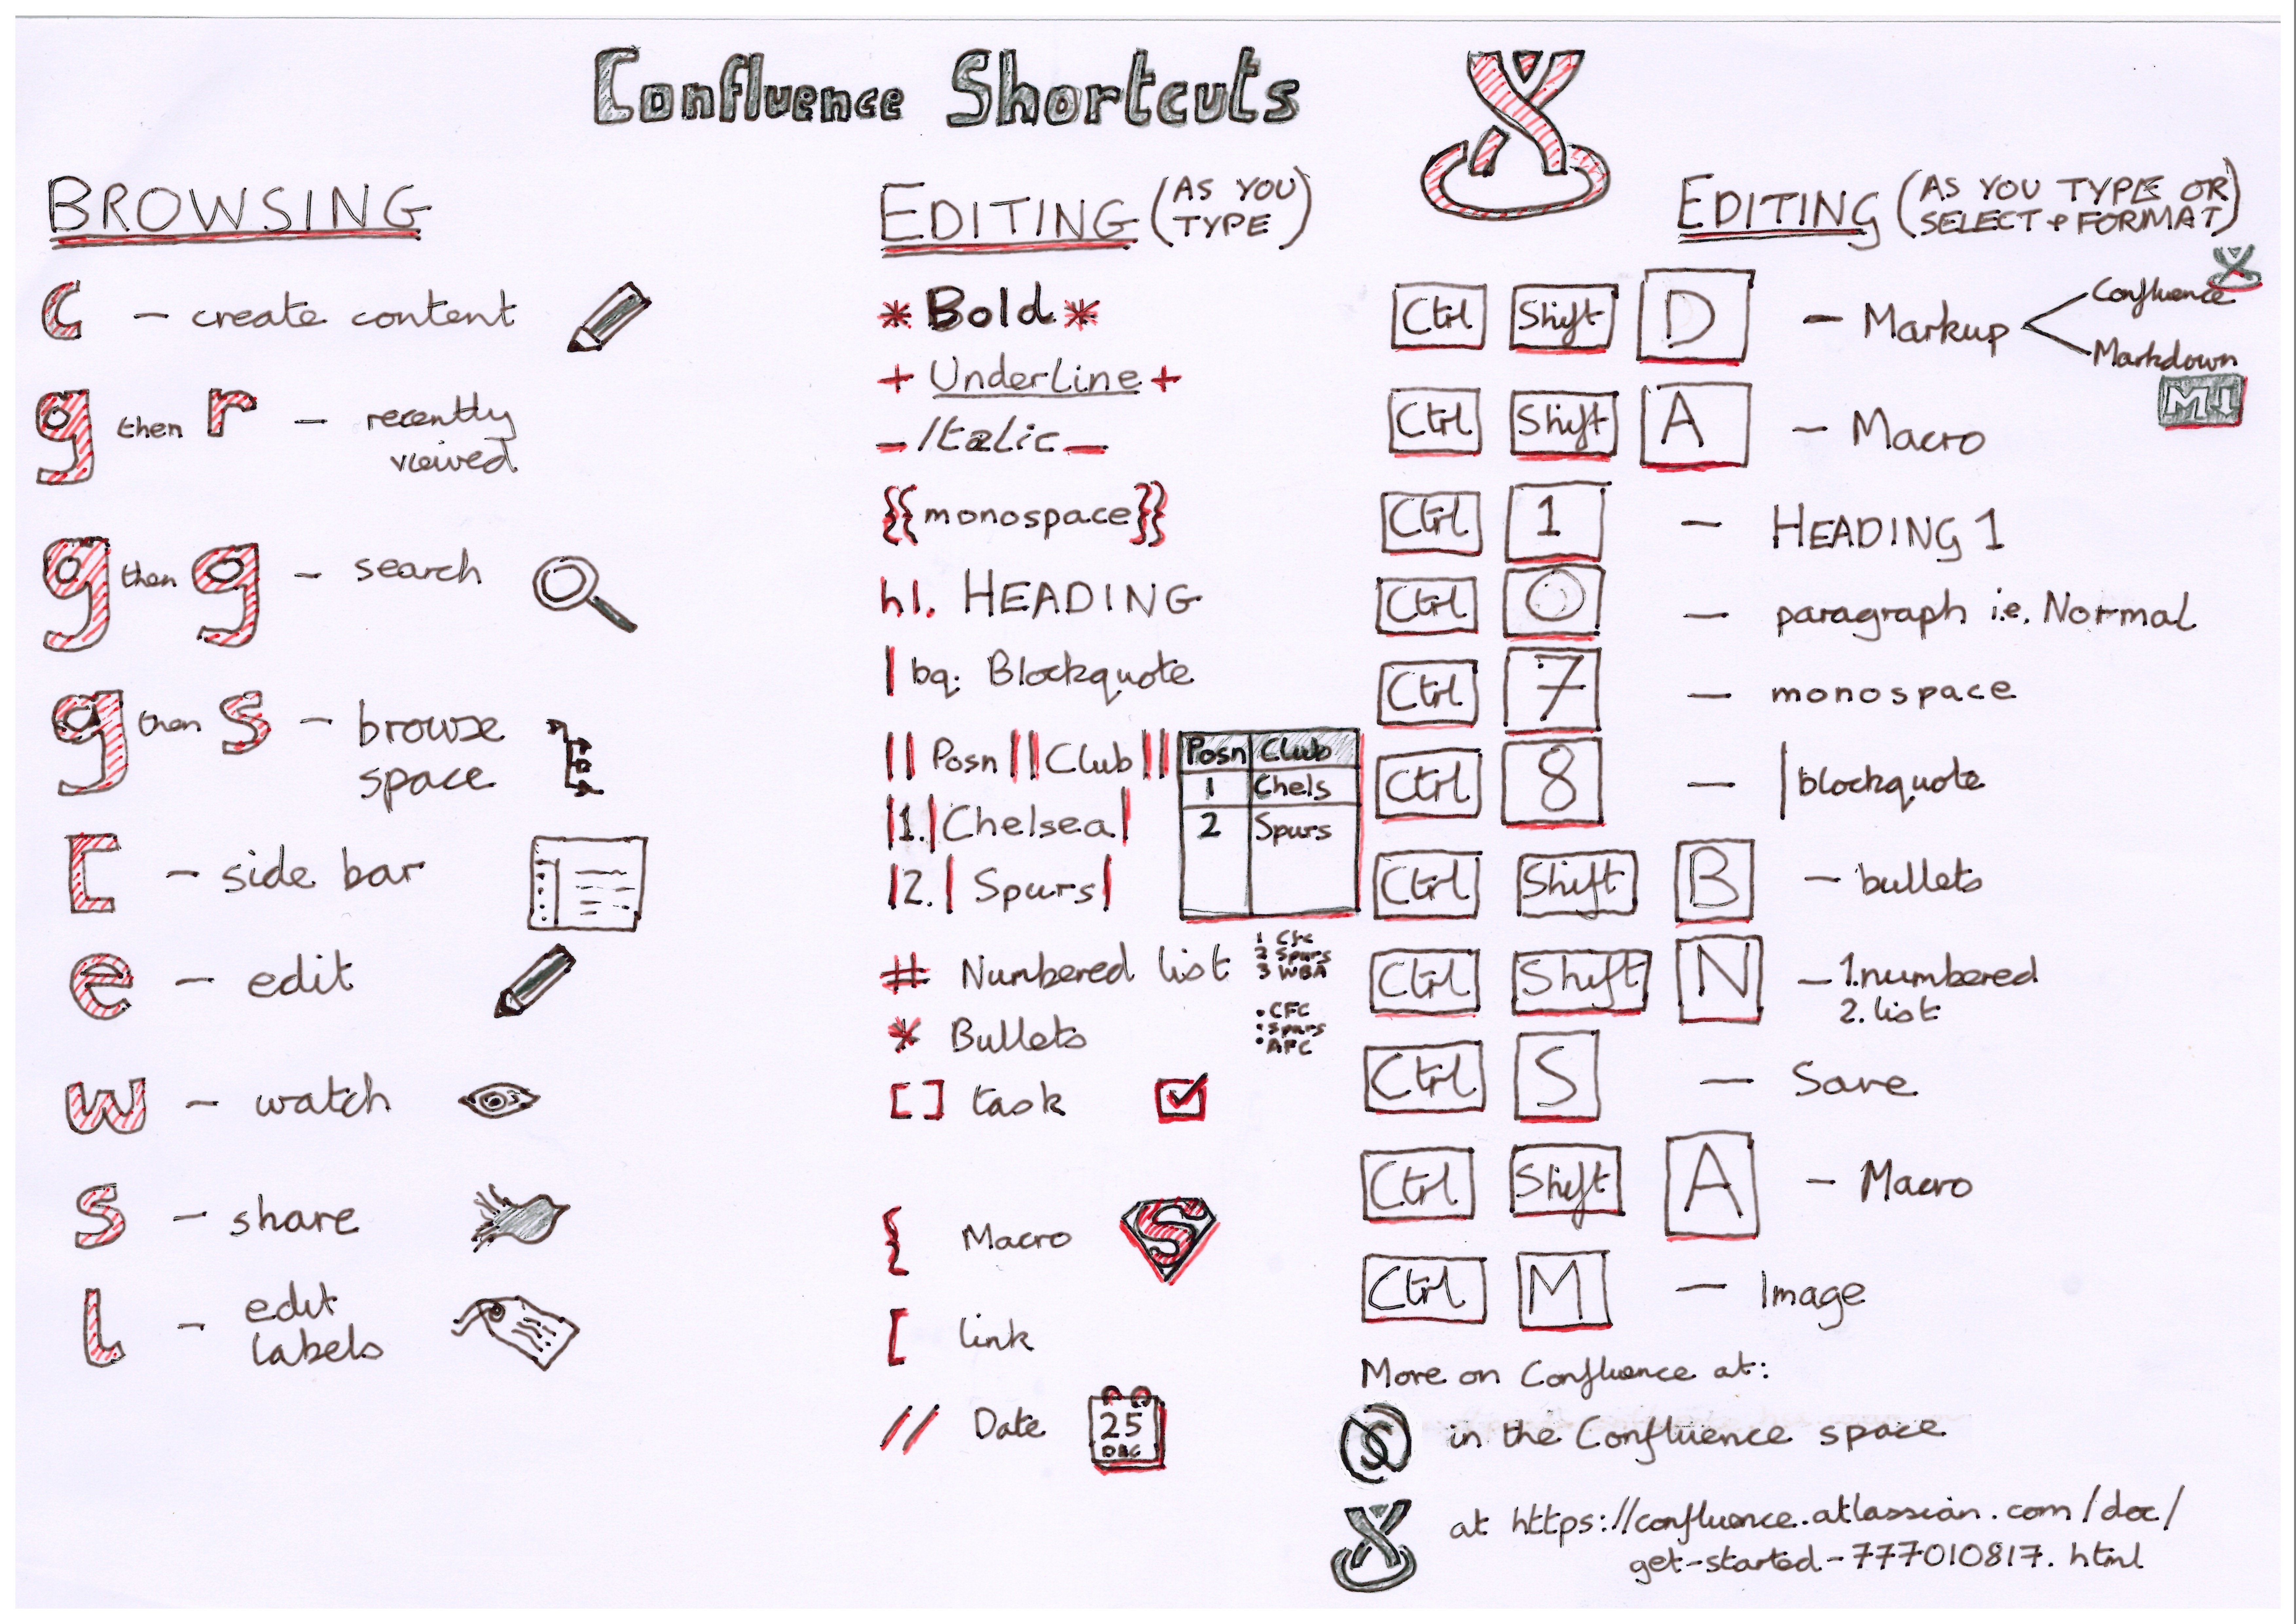 Confluence Shortcuts
BROWSING
c – create content
g then r – recently
viewed
g then g – search
g then s – browse
space
[ – side bar
e – edit
w – watch
s – share
l – edit
labels
EDITING (AS YOU
TYPE)
* Bold *
+ Underline +
_ Italic _
{{monospace}}
h1. HEADING
| bq. Blockquote
|| Posn || Club ||
|1.| Chelsea |
|2.| Spurs |
Posn Club
1 Chels
2 Spurs
# Numbered list
1 CFC
2 Spurs
3 WBA
* Bullets
• CFC
• Spurs
• AFC
[] task
{ Macro
S
[ link
// Date
25
DEC
EDITING (AS YOU TYPE OR
SELECT + FORMAT)
Ctrl Shift D – Markup
Confluence
Markdown
M↓
Ctrl Shift A – Macro
Ctrl 1 – HEADING 1
Ctrl 0 – paragraph i.e. Normal
Ctrl 7 – monospace
Ctrl 8 – | blockquote
Ctrl Shift B – bullets
Ctrl Shift N – 1. numbered
2. list
Ctrl S – Save
Ctrl Shift A – Macro
Ctrl M – Image
More on Confluence at:
in the Confluence space
at https://confluence.atlassian.com/doc/
get-started-777010817.html